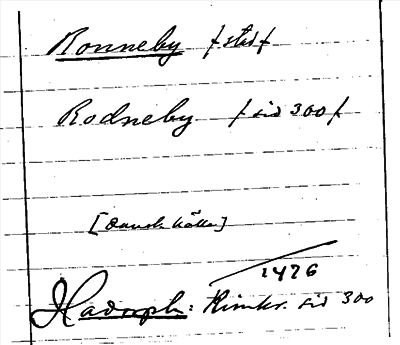 Ronneby / stad /
Rodneby / sid 300 /
[Dansk källa]
1476
Hadorph: Rimkr. sid 300